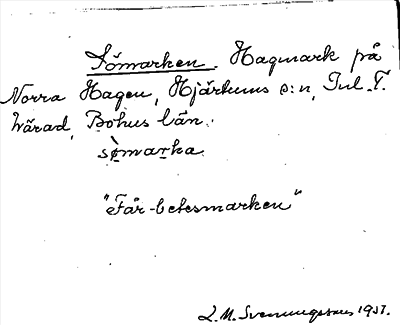 Sömarken. Hagmark på
Norra Hagen, Hjärtums s:n, Inl. T.
härad, Bohus län.
sö̀marka
"Får-betesmarken"
L.M. Svenungsson 1937.